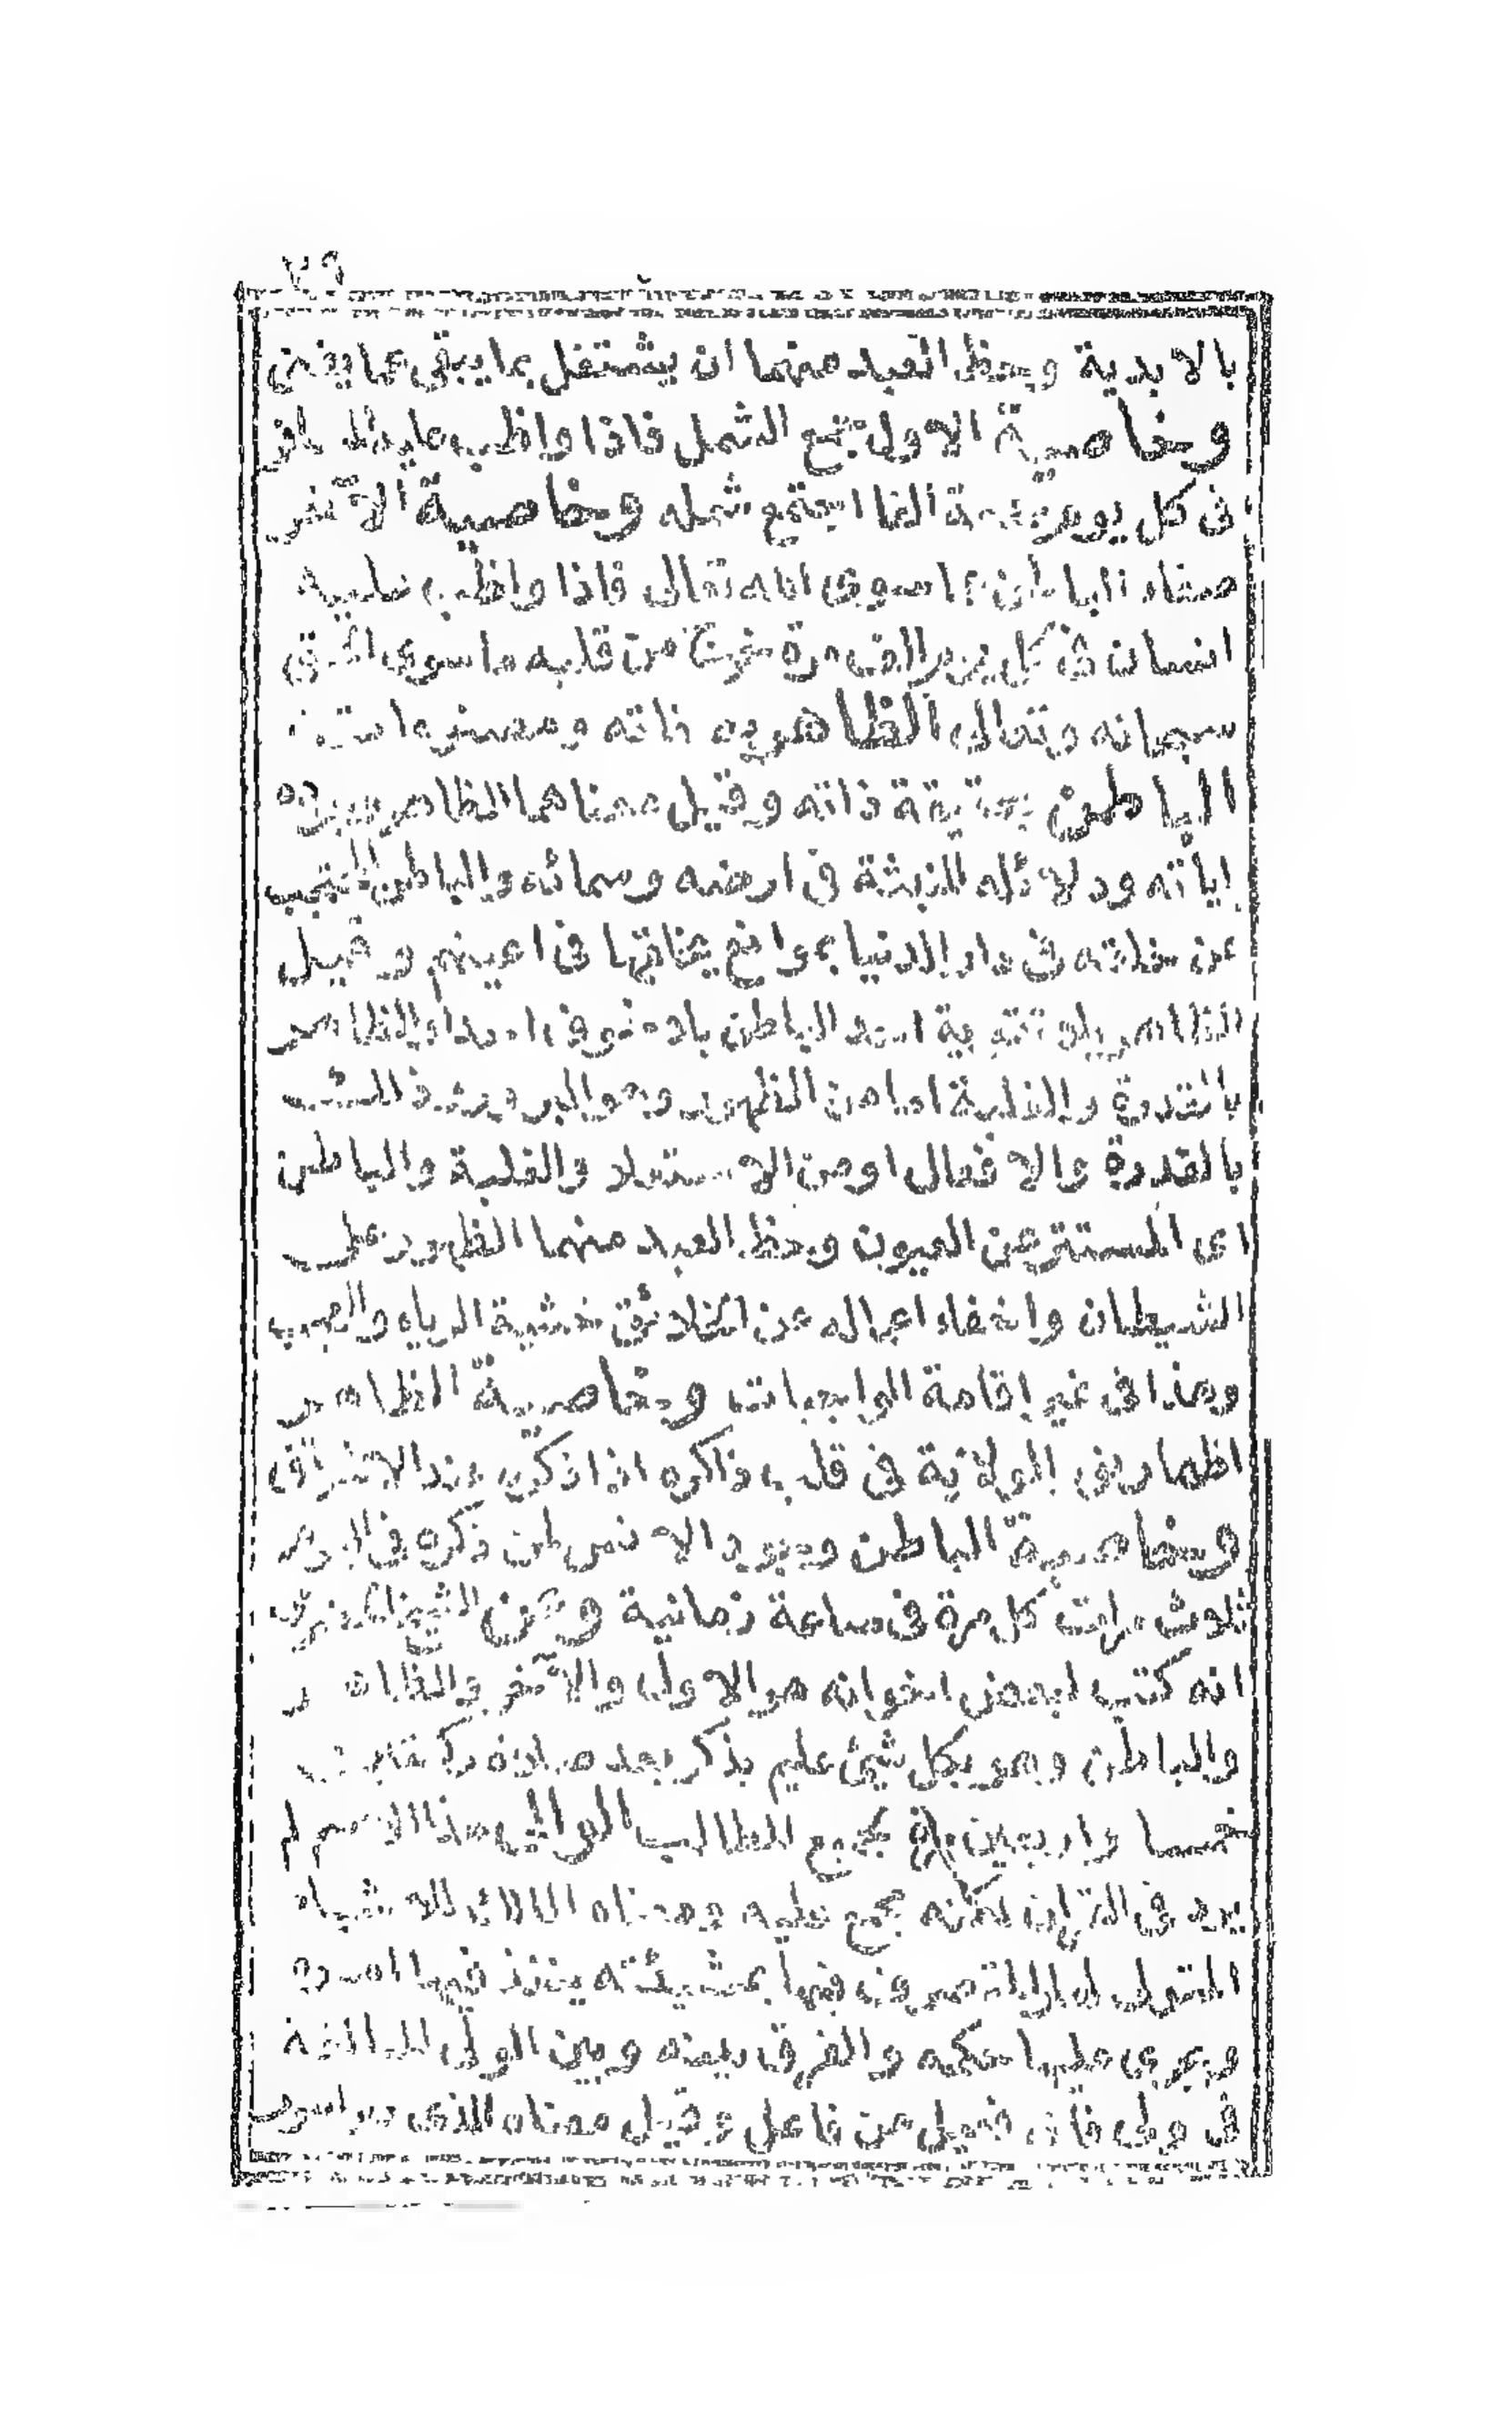 ٢٩
بالابدية وحظ العبد منهما ان يشتغل بما يبقى عما يفنى
وخاصية الاول جمع الشمل فاذا واظب عليه مسافر
فى كل يوم جمعة الفا اجتمع شمله وخاصية الآخر
صفاء الباطن عما سوى الله تعالى فاذا واظب عليه
انسان فى كل يوم الف مرة خرج من قلبه ما سوى الحق
سبحانه وتعالى الظاهر ذاته
الباطن بحقيقة ذاته وقيل معناهما الظاهر وجوده
اياته ودلائله المنبثة فى ارضه وسمائه والباطن المحتجب
عن خلقه فى دار الدنيا بموانع يخلقها فى اعينهم وقيل
الظاهر بلا تقوية احد الباطن بلا خوف احد او الظاهر
بالقدرة والغلبة اما من الظهور وهو البروز
بالقدرة والافعال او من الاستعلاء والغلبة والباطن
اى المستتر عن العيون وحظ العبد منهما الظهور على
الشيطان واخفاء اعماله عن الخلائق خشية الرياء والعجب
وهذا فى غير اقامة الواجبات وخاصية الظاهر
اظهار نور الولاية فى قلب ذاكره اذا ذكره عند الاشراق
وخاصية الباطن وجود الانس لمن ذكره فى اليوم
ثلاث مرات كل مرة فى ساعة زمانية وعن الشيخ
انه كتب لبعض اخوانه هو الاول والآخر والظاهر
والباطن وهو بكل شيئ عليم يذكر بعد صلاة ركعتين
خمسا واربعين مرة بجميع المطالب الوالى هذا الاسم لم
يرد فى القرآن لكنه مجمع عليه ومعناه المالك للاشياء
المتولى لها المتصرف فيها بمشيئته ينفذ فيها امره
ويجرى عليها حكمه والفرق بينه وبين الولى المبالغة
فى ولى فانه فعيل من فاعل وقيل معناه الذى